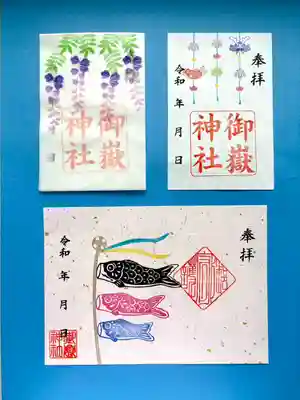 御嶽
神社
奉拝
令和 年 月 日
御嶽
神社
奉拝
令和 年 月 日
御嶽
神社